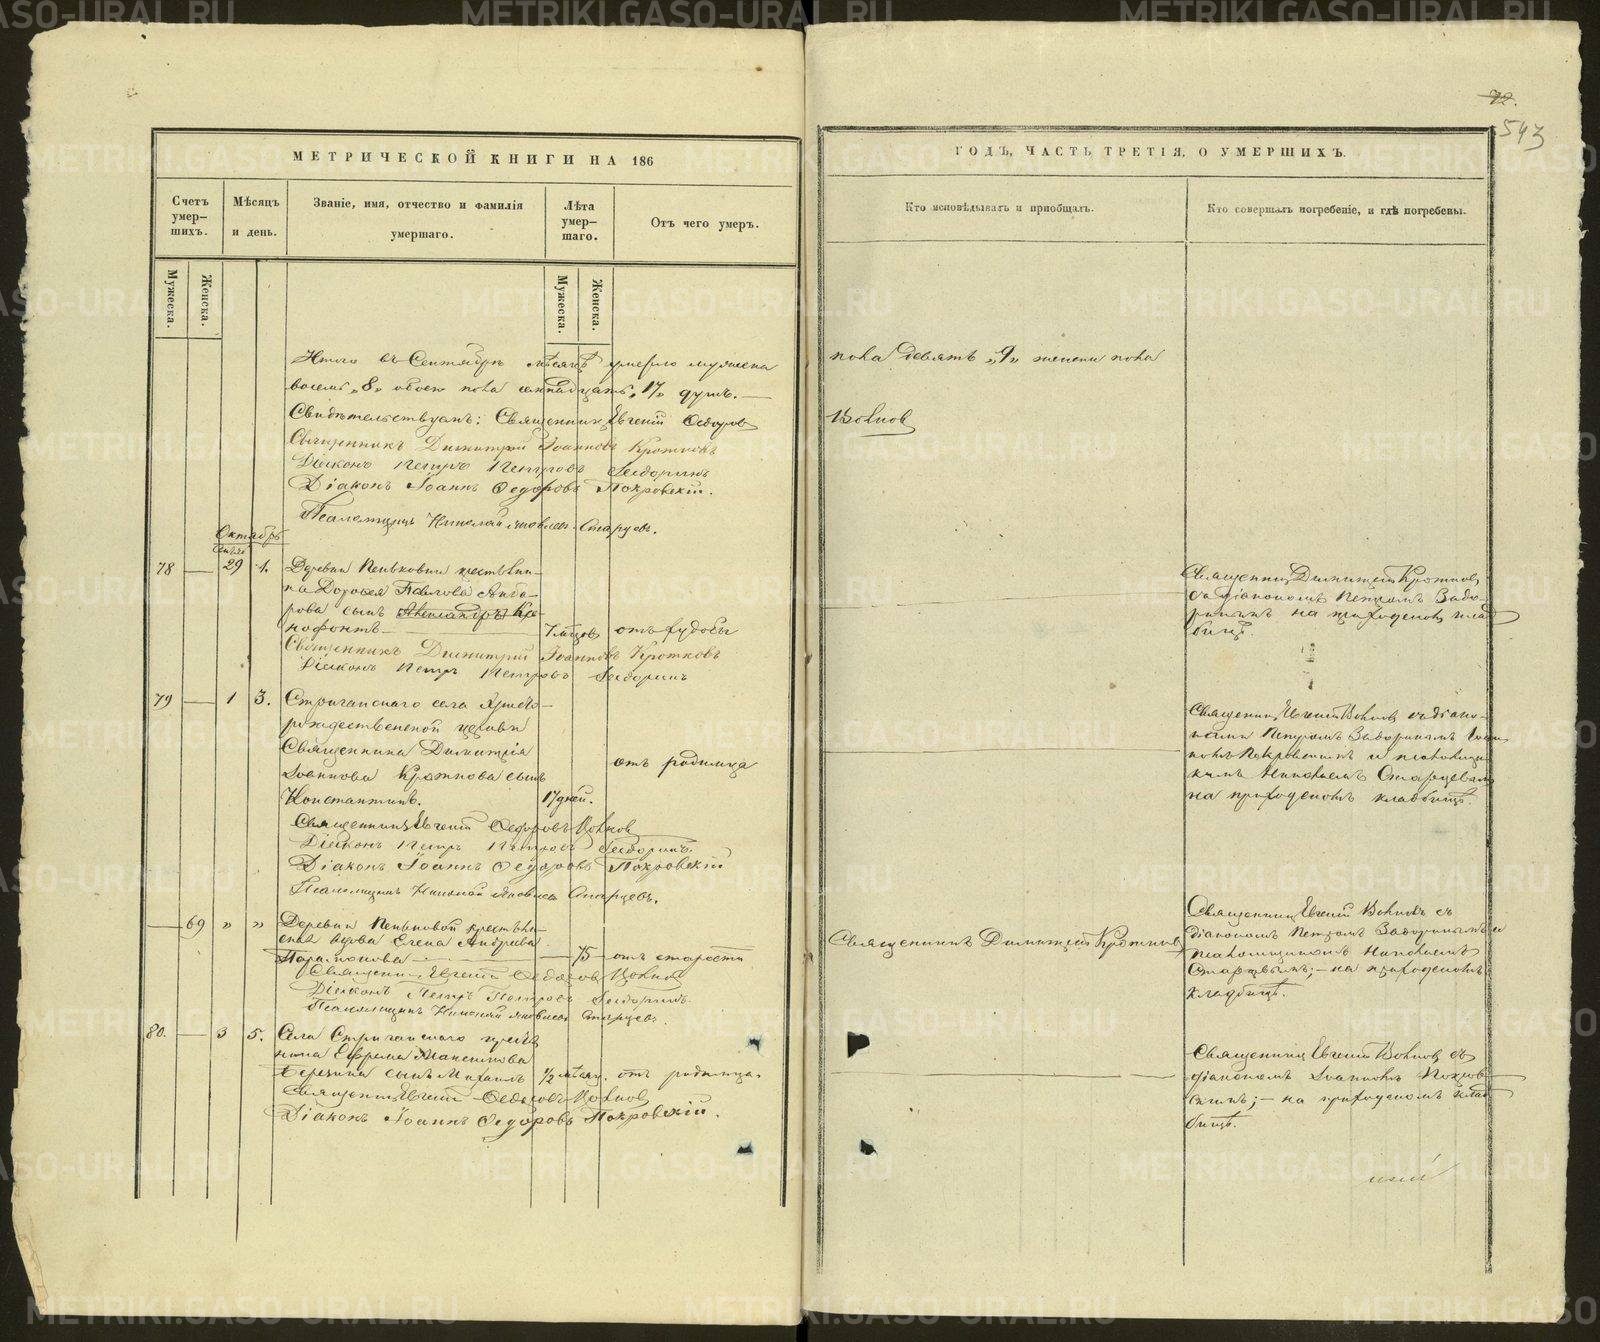 72.
543
МЕТРИЧЕСКОЙ КНИГИ НА 186
ГОДЪ, ЧАСТЬ ТРЕТІЯ, О УМЕРШИХЪ.
Счетъ умер-шихъ.
Мѣсяцъ и день.
Званіе, имя, отчество и фамилія умершаго.
Лѣта умер-шаго.
Отъ чего умеръ.
Кто исповѣдывалъ и пріобщалъ.
Кто совершалъ погребеніе, и гдѣ погребены.
Мужеска.
Женска.
Мужеска.
Женска.
Итого въ Сентябрѣ мѣсяцѣ умерло мужеска пола девять „9„ женска пола
восемь „8„ обоего пола семнадцать „17„ душъ.
Свидѣтельствуемъ: Священникъ Евгеній Ѳедоровъ Волковъ
Священникъ Димитрій Іоанновъ Кротковъ
Діаконъ Петръ Петровъ
Діаконъ Іоаннъ Ѳедоровъ Покровскій.
Псаломщикъ Николай Яковлевъ Старцевъ.
Октябрь
78 — 29 1. Деревни Пеньковки крестьяни-
на Дороѳея Павлова
рова сынъ Александръ Ксе-
нофонтъ — 7 мѣсяцовъ отъ худобы
Священникъ Димитрій Кротковъ
съ діакономъ Петромъ
на приходскомъ клад
бищѣ.
Священникъ Димитрій Іоанновъ Кротковъ
Діаконъ Петръ Петровъ
79 — 1 3. Стриганскаго села Христо-
рождественской церкви
Священника Димитрія
Іоаннова Кроткова сынъ
Константинъ. 17 дней. отъ родимца
Священникъ Евгеній Волковъ съ діако-
нами Петромъ
Покровскимъ и псаломщи-
комъ Николаемъ Старцевымъ
на приходскомъ кладбищѣ.
Священникъ Евгеній Ѳедоровъ Волковъ
Діаконъ Петръ Петровъ
Діаконъ Іоаннъ Ѳедоровъ Покровскій
Псаломщикъ Николай Яковлевъ Старцевъ.
— 69 „ „ Деревни Пеньковой крестьян-
ская вдова Елена Андреева
Парамонова — 75 — отъ старости
Священникъ Димитрій Кротковъ
Священникъ Евгеній Волковъ съ
діакономъ Петромъ и
псаломщикомъ Николаемъ
Старцевымъ; — на приходскомъ
кладбищѣ.
Священникъ Евгеній Ѳедоровъ Волковъ
Діаконъ Петръ Петровъ
Псаломщикъ Николай Яковлевъ Старцевъ.
80. — 3 5. Села Стриганскаго крестья
нина Ефрема
сынъ Михаилъ 1/2 мѣсяц. отъ родимца.
Священникъ Евгеній Волковъ съ
діакономъ Іоанномъ Покров-
скимъ; — на приходскомъ клад
бищѣ.
Священникъ Евгеній Ѳедоровъ Волковъ
Діаконъ Іоаннъ Ѳедоровъ Покровскій.
METRIKI.GASO-URAL.RU